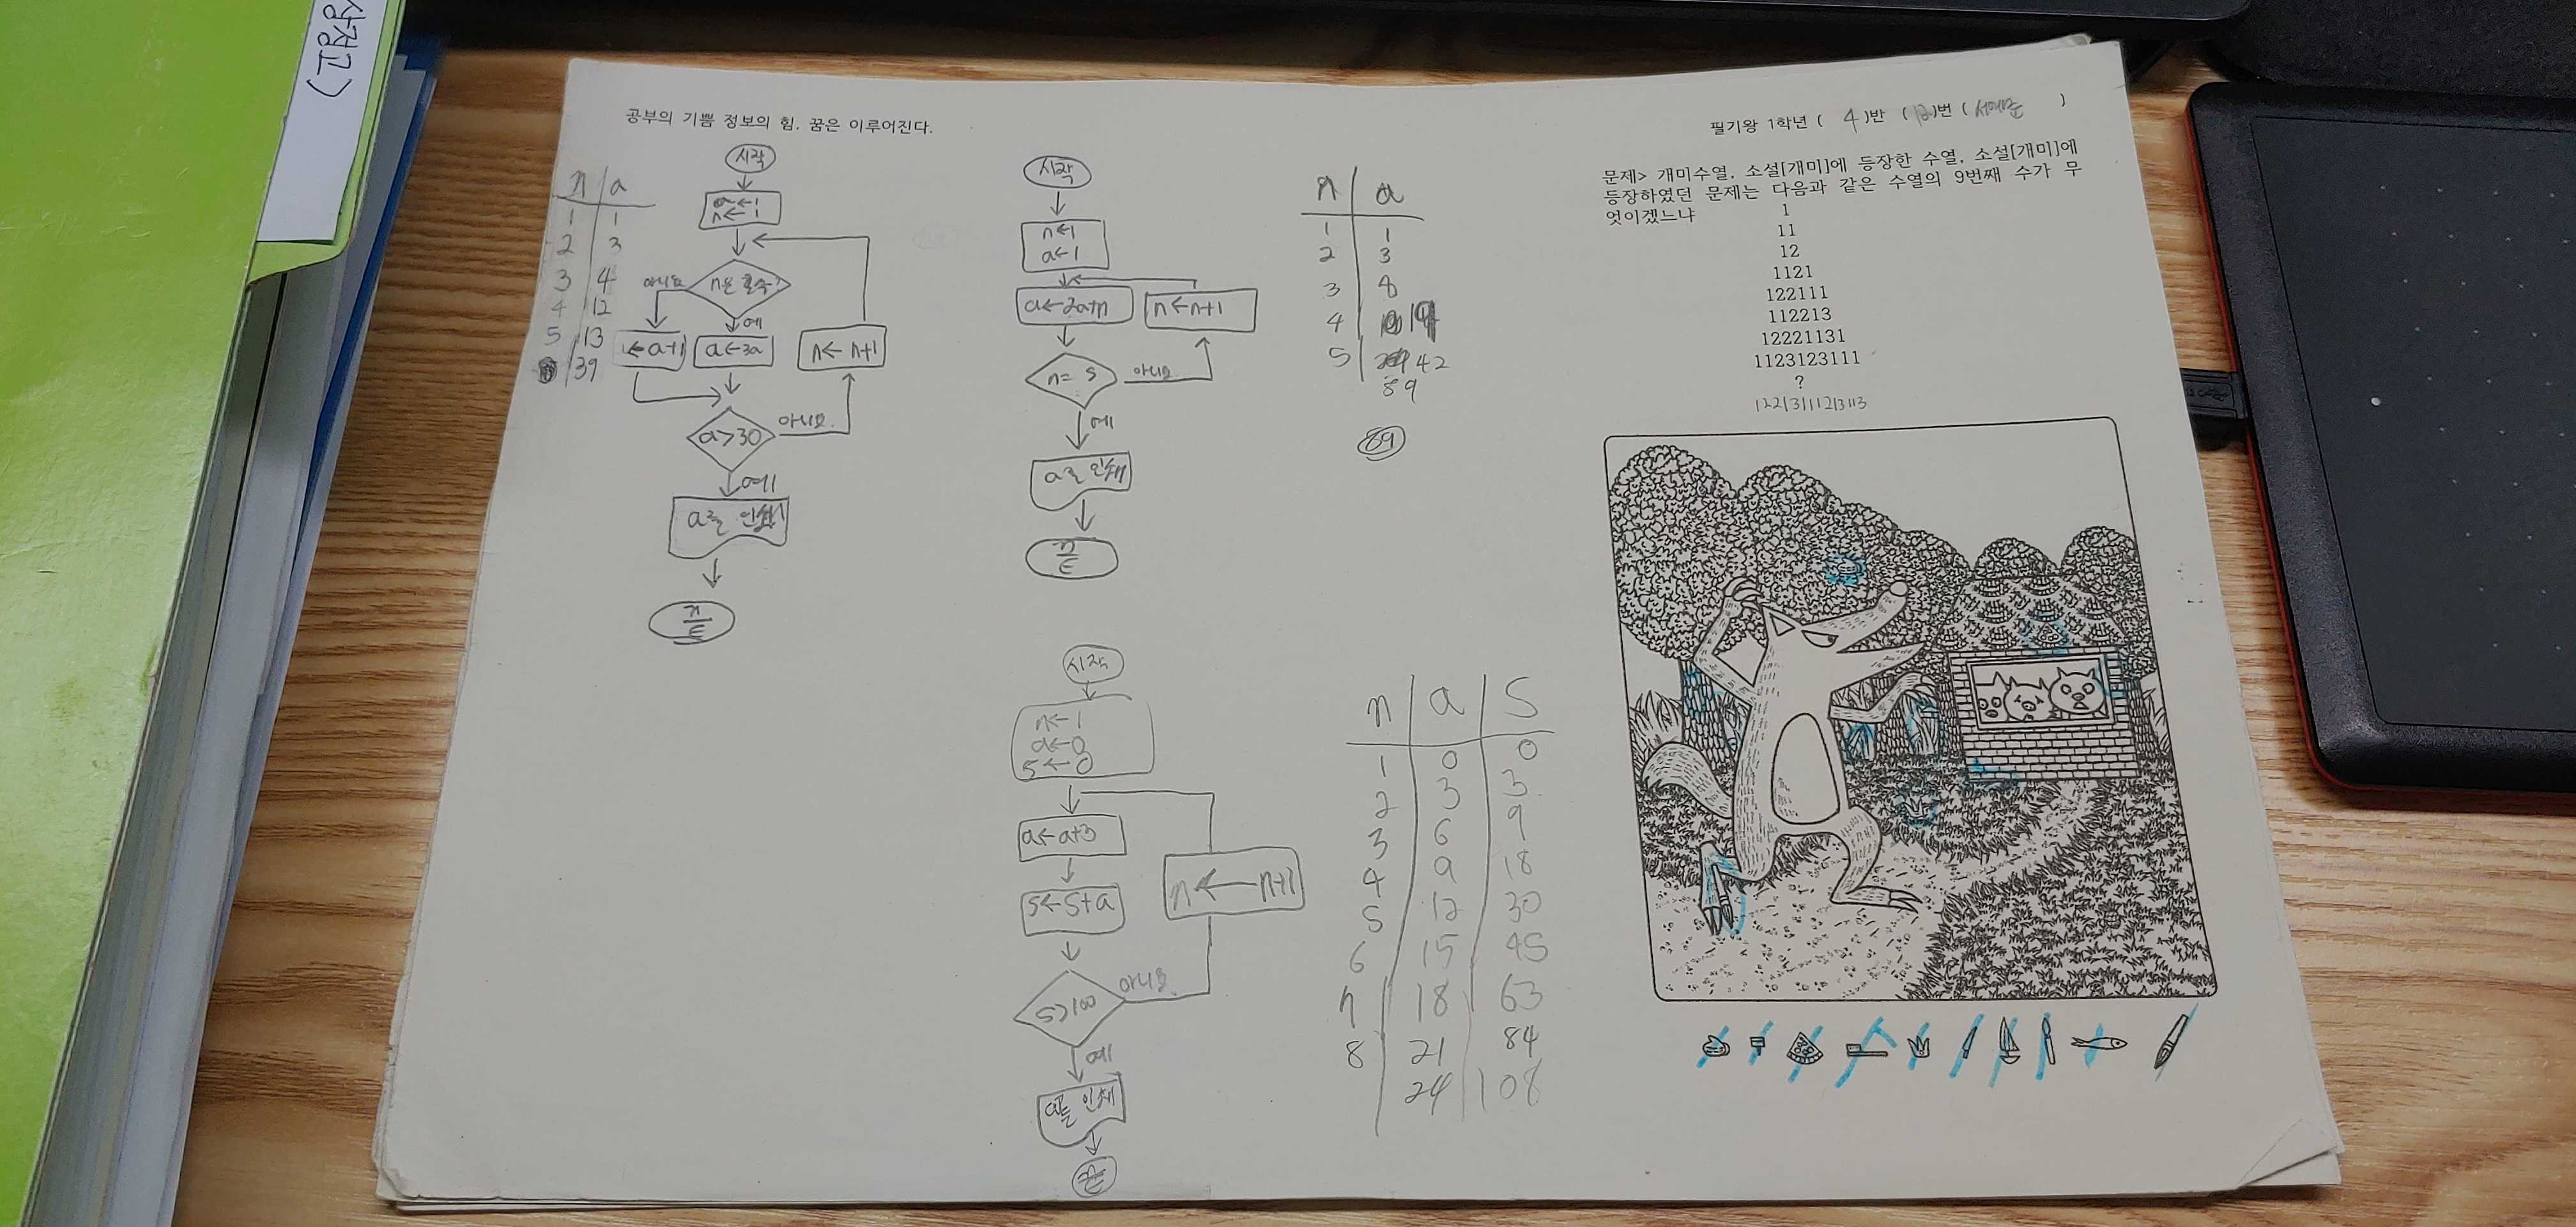 상정고)
공부의 기쁨 정보의 힘. 꿈은 이루어진다.
필기왕 1학년 ( 4 )반 ( 12 )번 ( )
n a
1 1
2 3
3 4
4 12
5 13
39
시작
a←1
n←1
n은 홀수?
아니요
예
←a+1
a←3a
n←n+1
a>30
아니요
예
a를 인쇄
끝
시작
n←1
a←1
a←2a+n
n←n+1
n= 5
아니요
예
a를 인쇄
끝
n a
1 1
2 3
3 8
4 19
5 42
89
89
시작
n←1
a←0
s←0
a←a+3
s←s+a
n←n+1
s>100
아니요
예
a를 인쇄
끝
n a S
1 0 0
2 3 3
3 6 9
4 9 18
5 12 30
6 15 45
7 18 63
8 21 84
24 108
문제> 개미수열, 소설[개미]에 등장한 수열, 소설[개미]에
등장하였던 문제는 다음과 같은 수열의 9번째 수가 무
엇이겠느냐
1
11
12
1121
122111
112213
12221131
1123123111
?
12213111213113